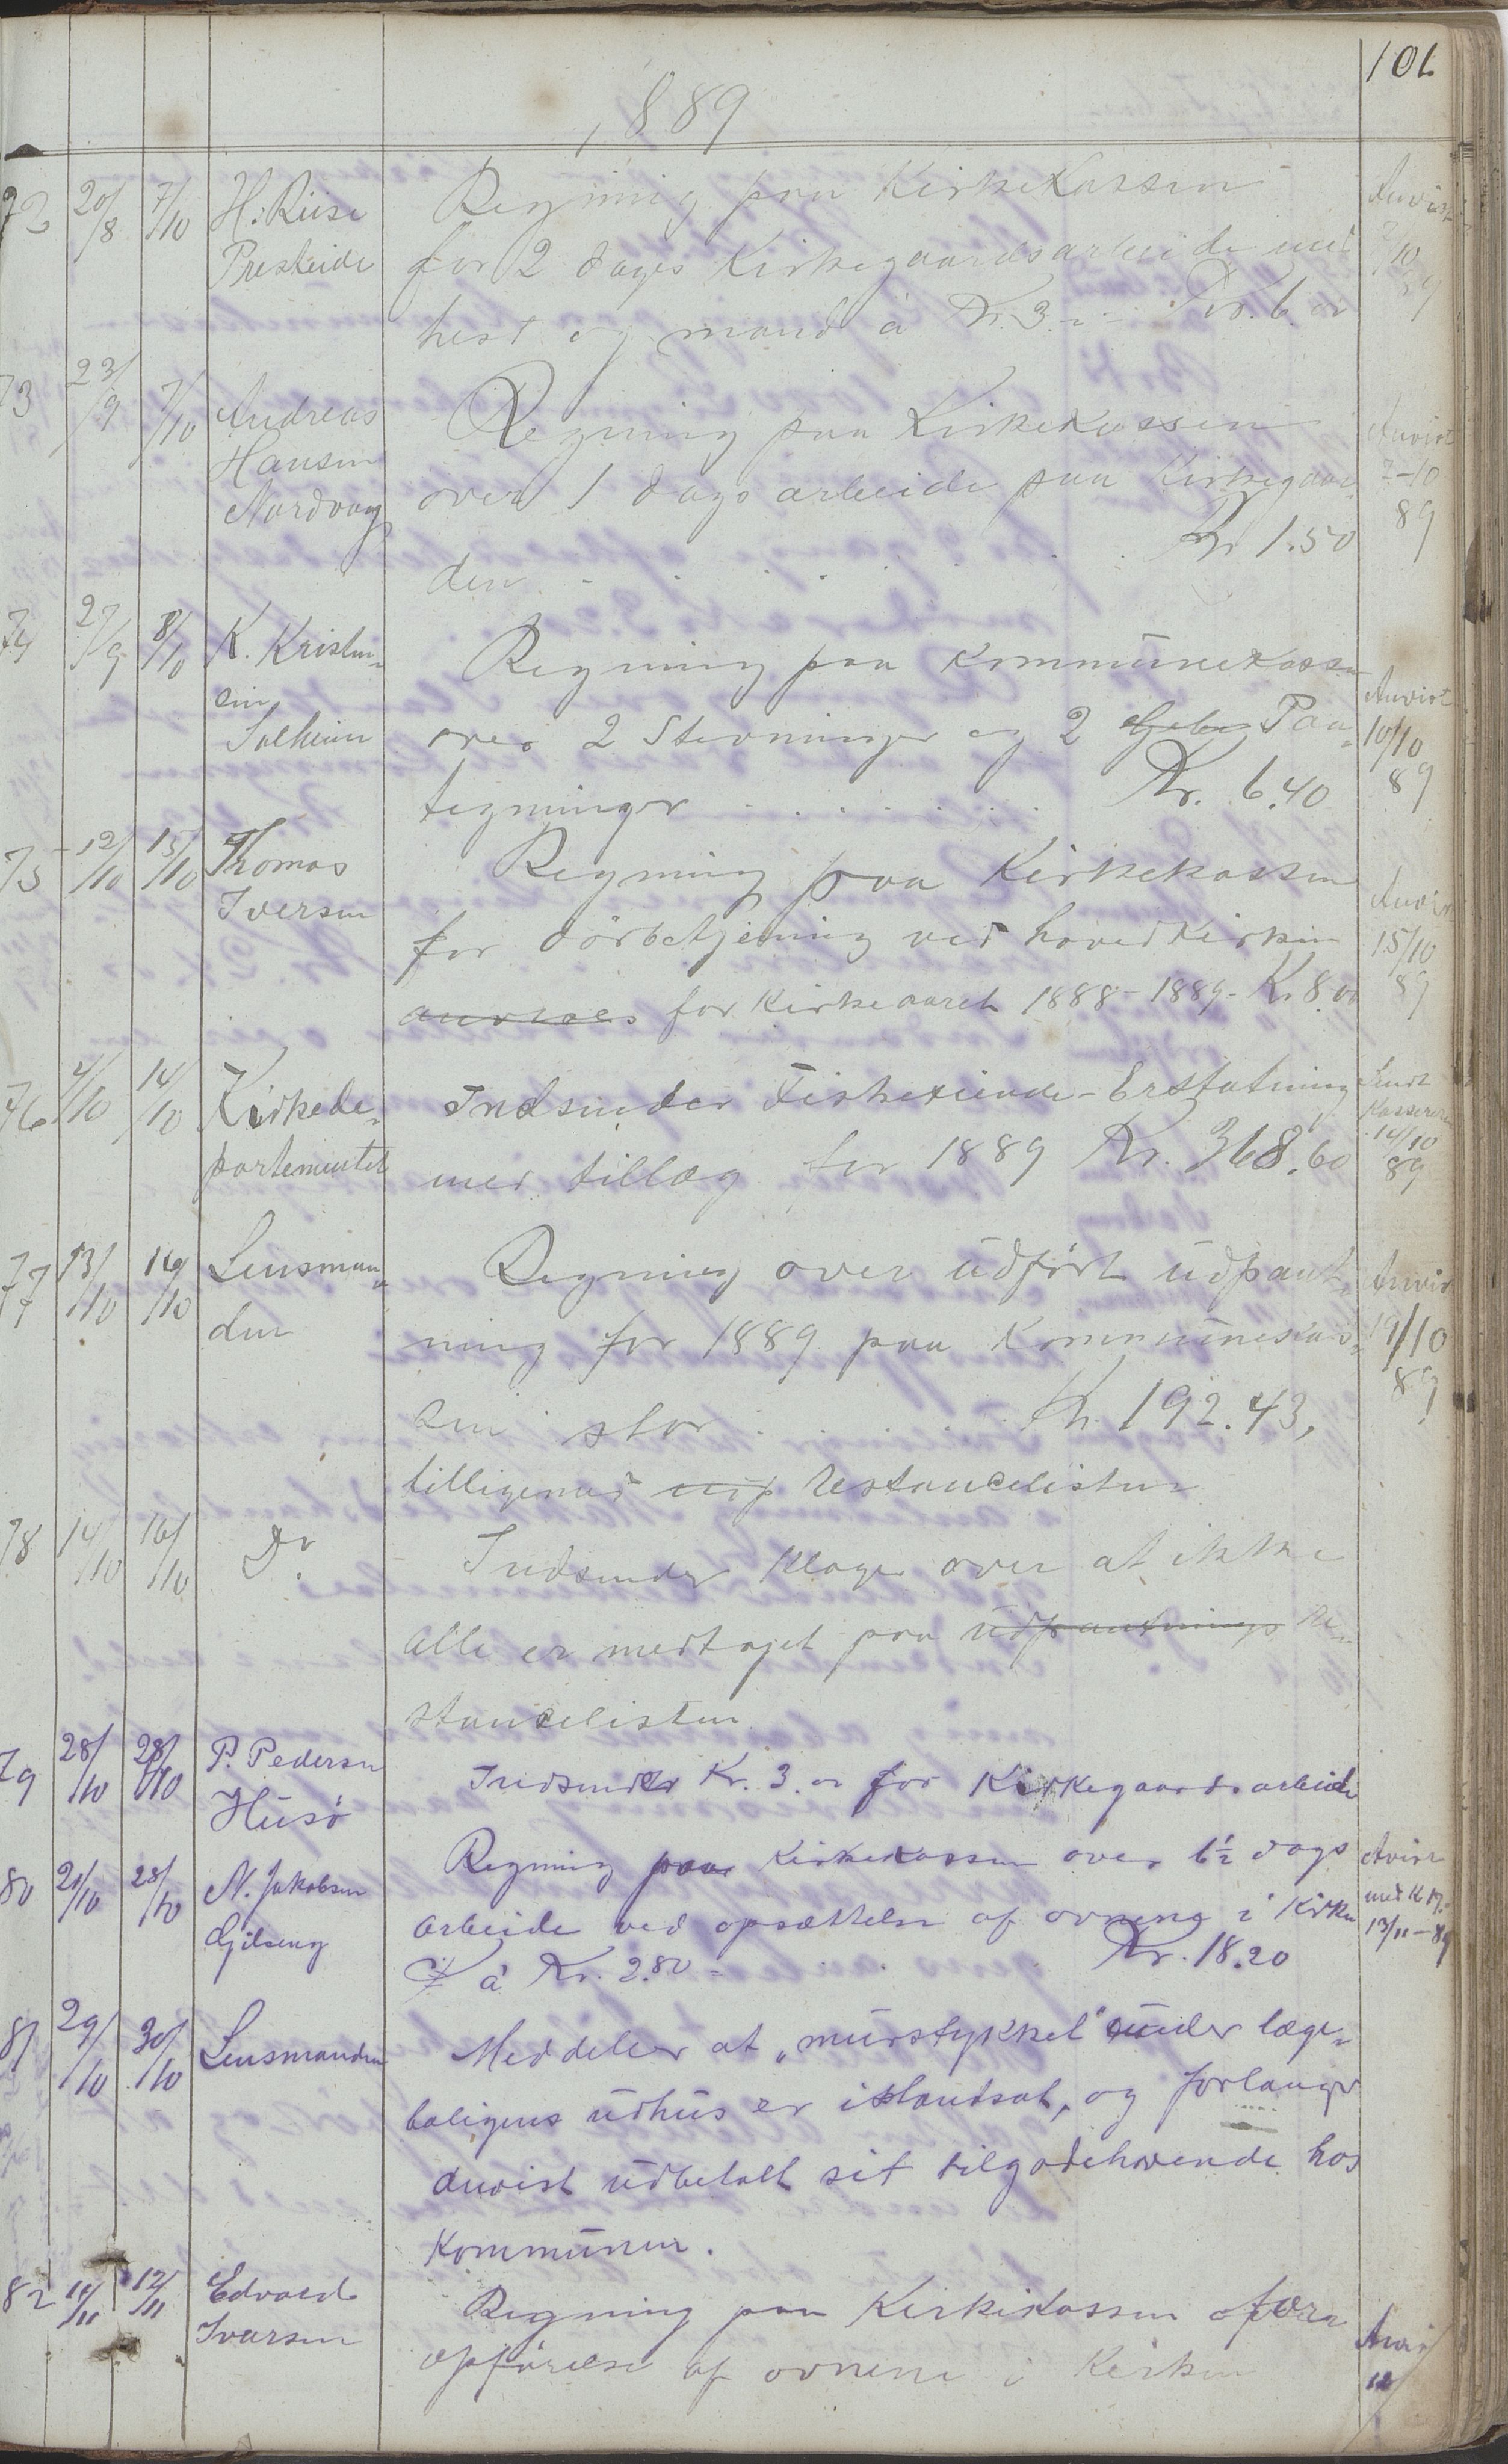 101
1889
72 20/8 7/10 H. Riise Regning paa Kirkekassen Anvist
Presteide for 2 dages Kirkegaardsarbeide med 7/10
hest og mand á Kr. 3 - Kr. 6.00 89
73 23/9 7/10 Andreas Regning paa Kirkekassen Anvist
Hansen over 1 dags arbeide paa Kirkegaar- 7-10
Nordvaag den . . . . . Kr 1.50 89
74 27/9 8/10 K. Kristen- Regning paa Kommunekassen Anvist
sen over 2 Stevninger og 2 Paa- 10/10
Solheim tegninger . . . . . Kr. 6.40 89
75 12/10 15/10 Thomas Regning paa Kirkekassen Anvist
Iversen for dörbetjening ved hovedkirken 15/10
for Kirkeaaret 1888-1889 - Kr 8.00 89
76 4/10 14/10 Kirkede- Indsender Fisketiende-Erstatning Sendt
partementet med tillæg for 1889 Kr. 368.60 Kassereren
14/10
89
77 13/10 16/10 Lensman- Regning over udfört udpant- Anvist
den ning for 1889 paa Kommunekas- 19/10
sen stor . . Kr. 192.43, 89
tilligemed restancelisten
78 14/10 16/10 Do. Indsender klage over at ikke
alle er medtaget paa udpantnings re-
stancelisten
79 28/10 28/10 P. Pedersen Indsender Kr. 3.00 for Kirkegaardsarbeide
Husö
80 21/10 28/10 N. Jakobsen Regning paa Kirkekassen over 6½ dags Avist
Gjilseng arbeide ved opsættelse af ovnene i Kirken med Kr 17.
á Kr. 2.80 - . . Kr. 18.20 13/11-89
81 29/10 30/10 Lensmanden Meddeler at „murstykket" under læge-
boligens udhus er istandsat, og forlanger
anvist udbetalt sit tilgodehavende hos
Kommunen.
82 11/11 12/11 Edvard Regning paa Kirkekassen for Anvist
Ivarsen opförelse af ovnene i Kirken 12/